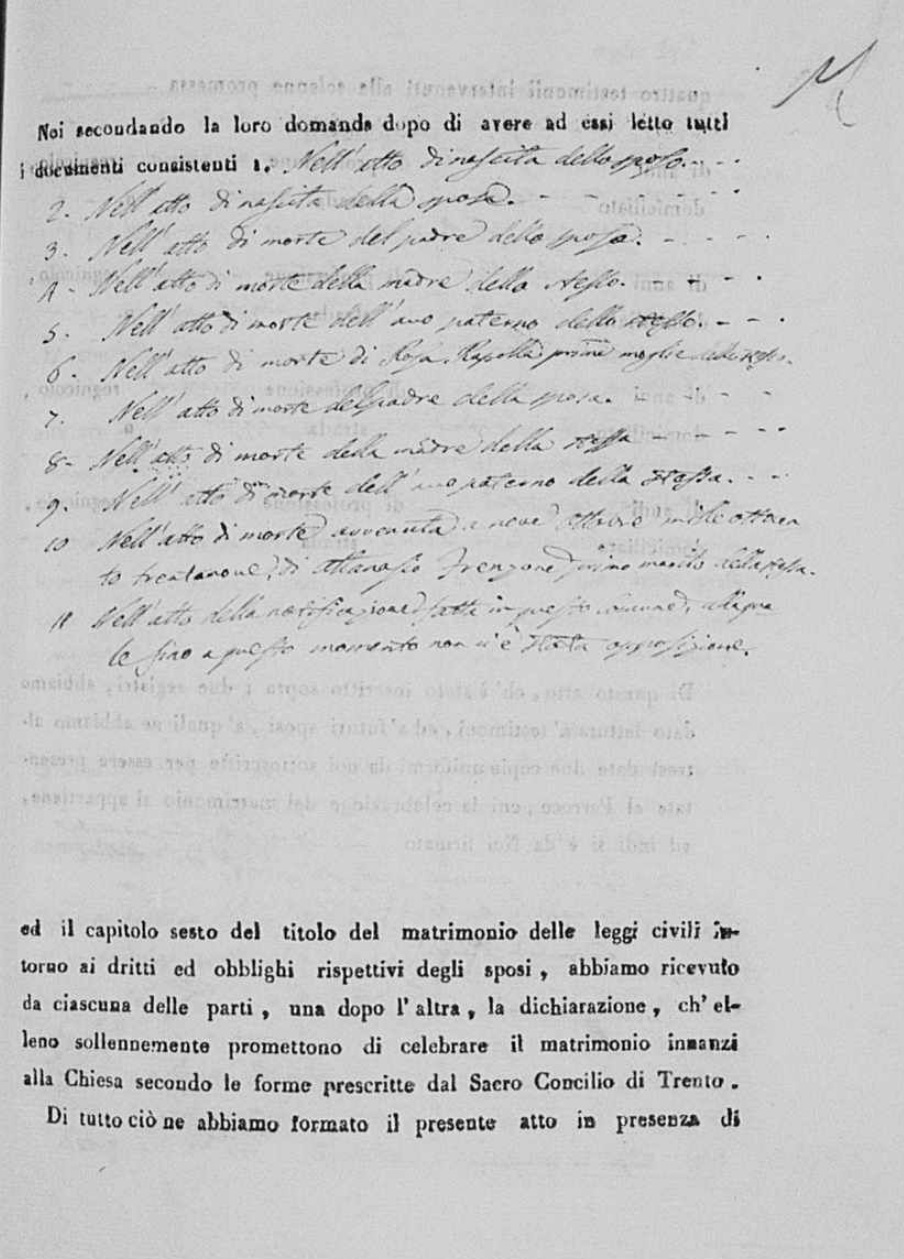 Noi secondando la loro domanda dopo di avere ad essi letto tutti
i documenti consistenti 1. Nell'atto di nascita dello sposo.
2. Nell'atto di nascita della sposa.
3. Nell'atto di morte del padre dello sposo.
4. Nell'atto di morte della madre dello stesso.
5. Nell'atto di morte dell'avo paterno dello stesso.
6. Nell'atto di morte di Rosa Rapolla prima moglie dello stesso.
7. Nell'atto di morte del padre della sposa.
8. Nell'atto di morte della madre della stessa
9. Nell'atto di morte dell'avo paterno della stessa.
10 Nell'atto di morte avvenuta a nove Ottobre mille ottocen
to trentanove, di Attanasio primo marito della stessa.
11 Nell'atto della notificazione fatta in questo Comune, alla qua
le fino a questo momento non vi è stata opposizione.
ed il capitolo sesto del titolo del matrimonio delle leggi civili in-
torno ai dritti ed obblighi rispettivi degli sposi, abbiamo ricevuto
da ciascuna delle parti, una dopo l'altra, la dichiarazione, ch'el-
leno sollennemente promettono di celebrare il matrimonio innanzi
alla Chiesa secondo le forme prescritte dal Sacro Concilio di Trento.
Di tutto ciò ne abbiamo formato il presente atto in presenza di